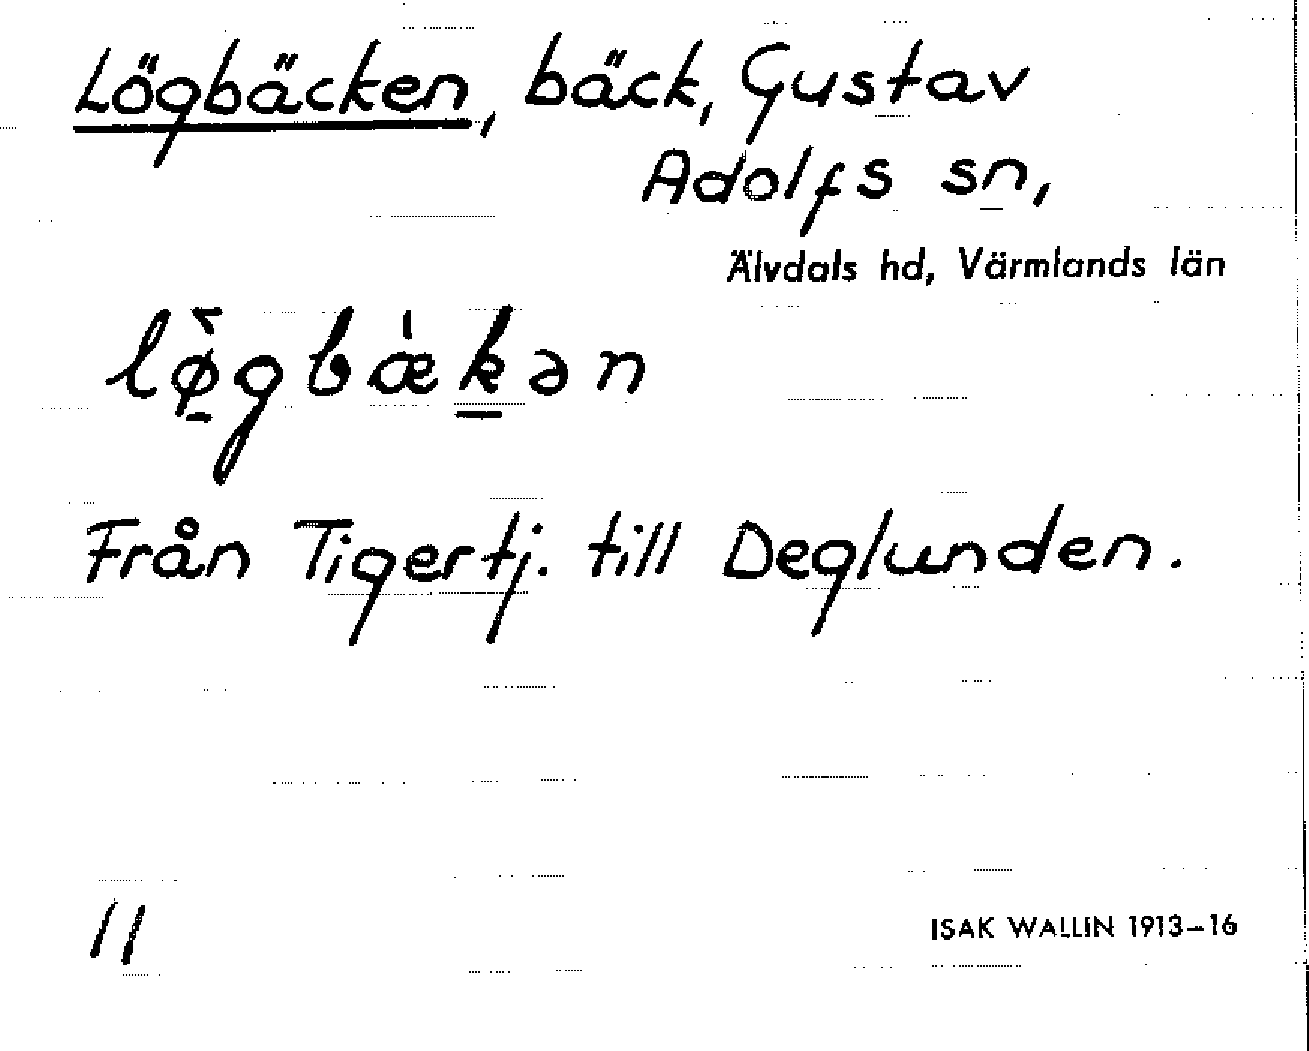 Lögbäcken, bäck, Gustav
Adolfs sn,
Älvdals hd, Värmlands län
lø̠̀gbæ̀k̠ən
Från Tigertj. till Deglunden.
11
ISAK WALLIN 1913–16